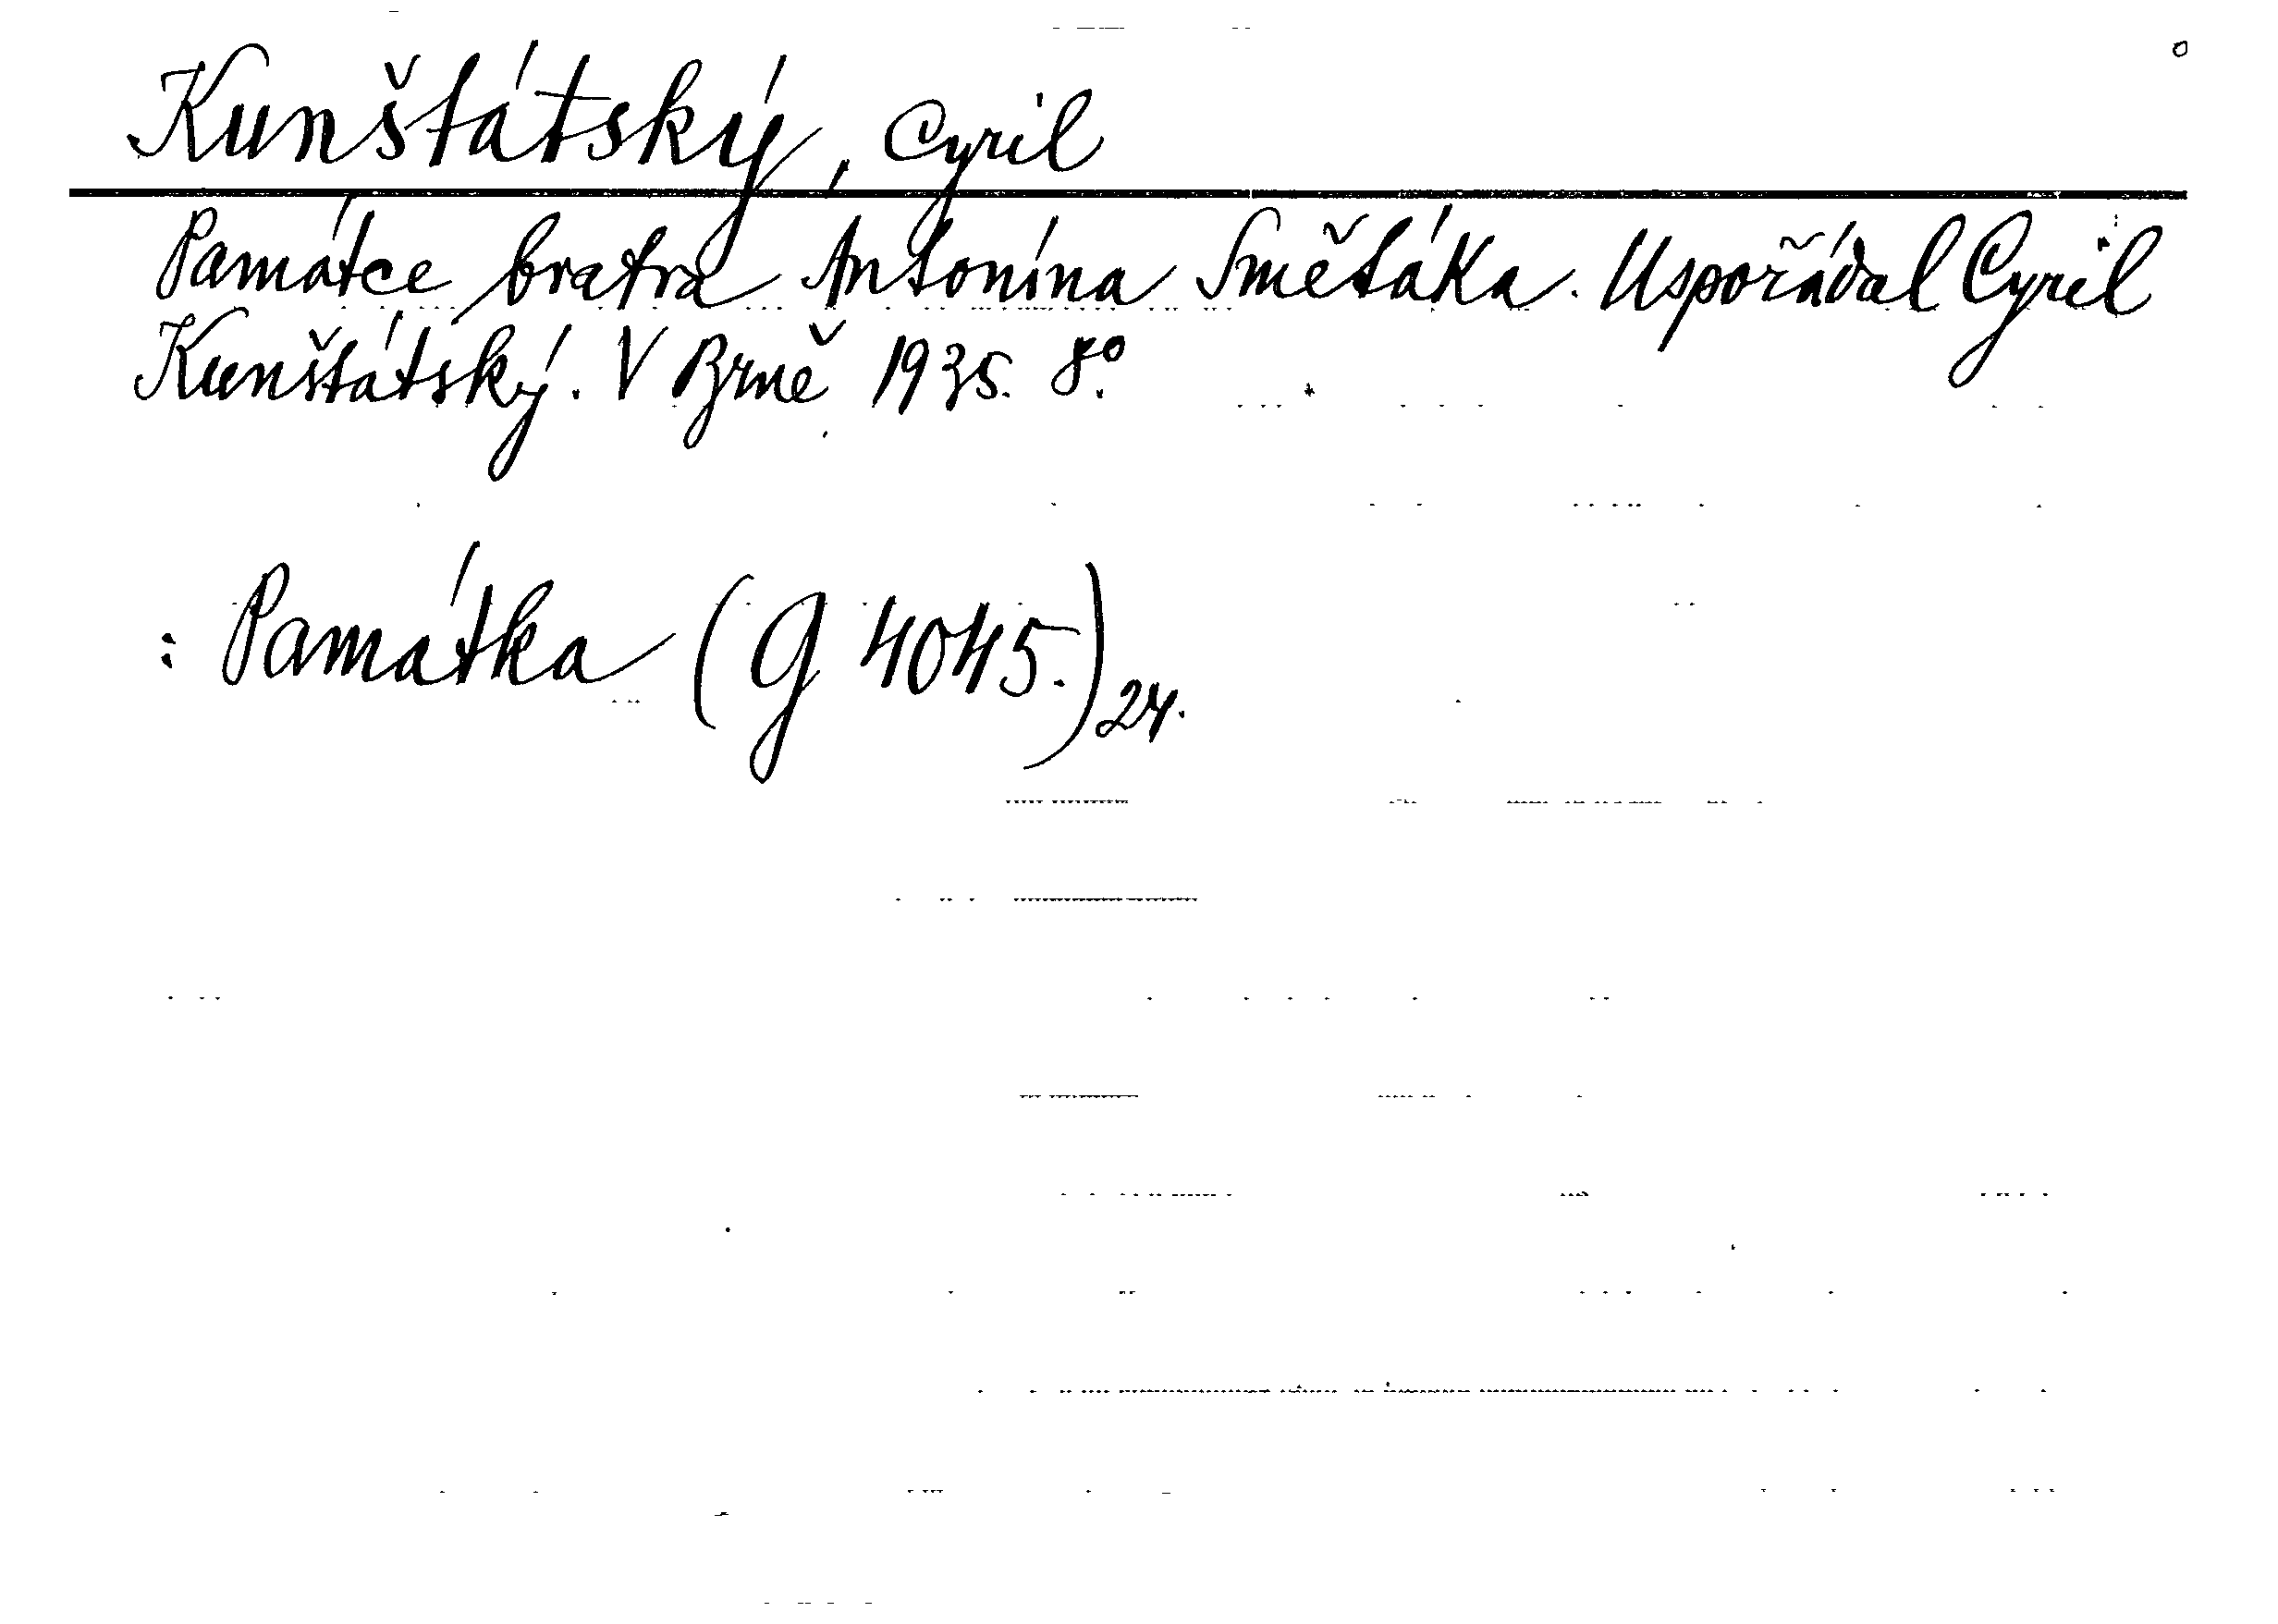 Kunštátský, Cyril
Památce bratra Antonína Smětáka. Uspořádal Cyril
Kunštátský. V Brně 1935. 8°.
: Památka (G 4045.) 24.